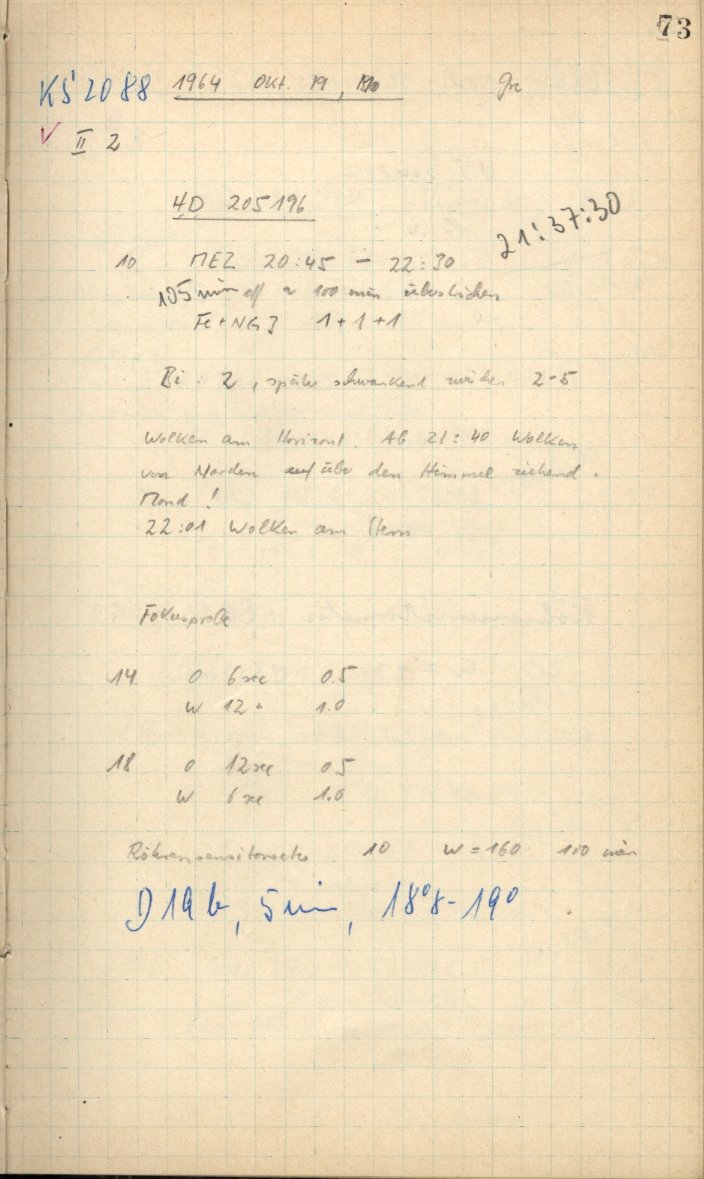 73
KS 2088 1964 Okt. 19, Gre
✓ II 2
4D 205196
21:37:30
10 MEZ 20:45 – 22:30
105 min eff ~ 100 min überstrichen
Fe + NG3 1+1+1
Bi : 2, später schwankend zwischen 2-5
Wolken am Horizont. Ab 21:40 Wolken
von Norden über den Himmel ziehend.
Mond !
22:01 Wolken am Stern
Fokusprobe
14 O 6 sec 0.5
W 12 " 1.0
18 O 12 sec 0.5
W 6 sec 1.0
Röhrensensitometer 10 W = 160 100 min
D19b, 5 min, 18°8-19°